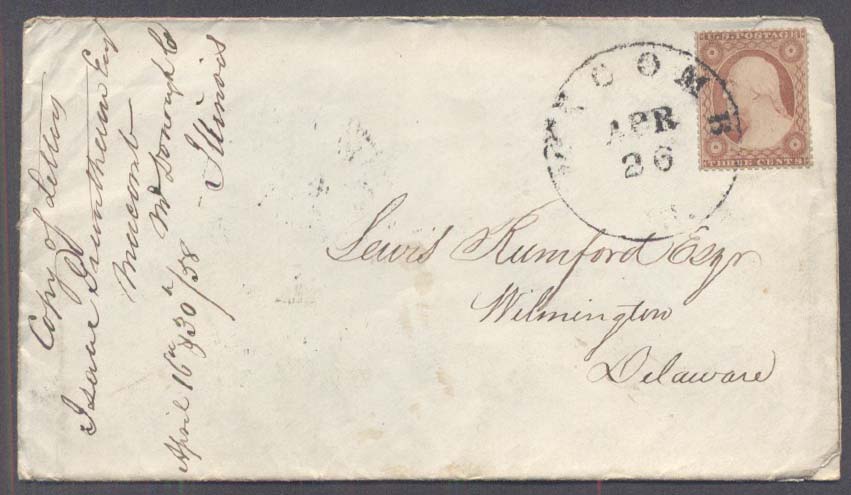 Copy of Letters
Isaac Grantham Esq
Macomb
McDonough Co
Illinois
April 16th & 30th/58
MACOMB
APR
26
U.S. POSTAGE
THREE CENTS
Lewis Rumford Esqr
Wilmington
Delaware